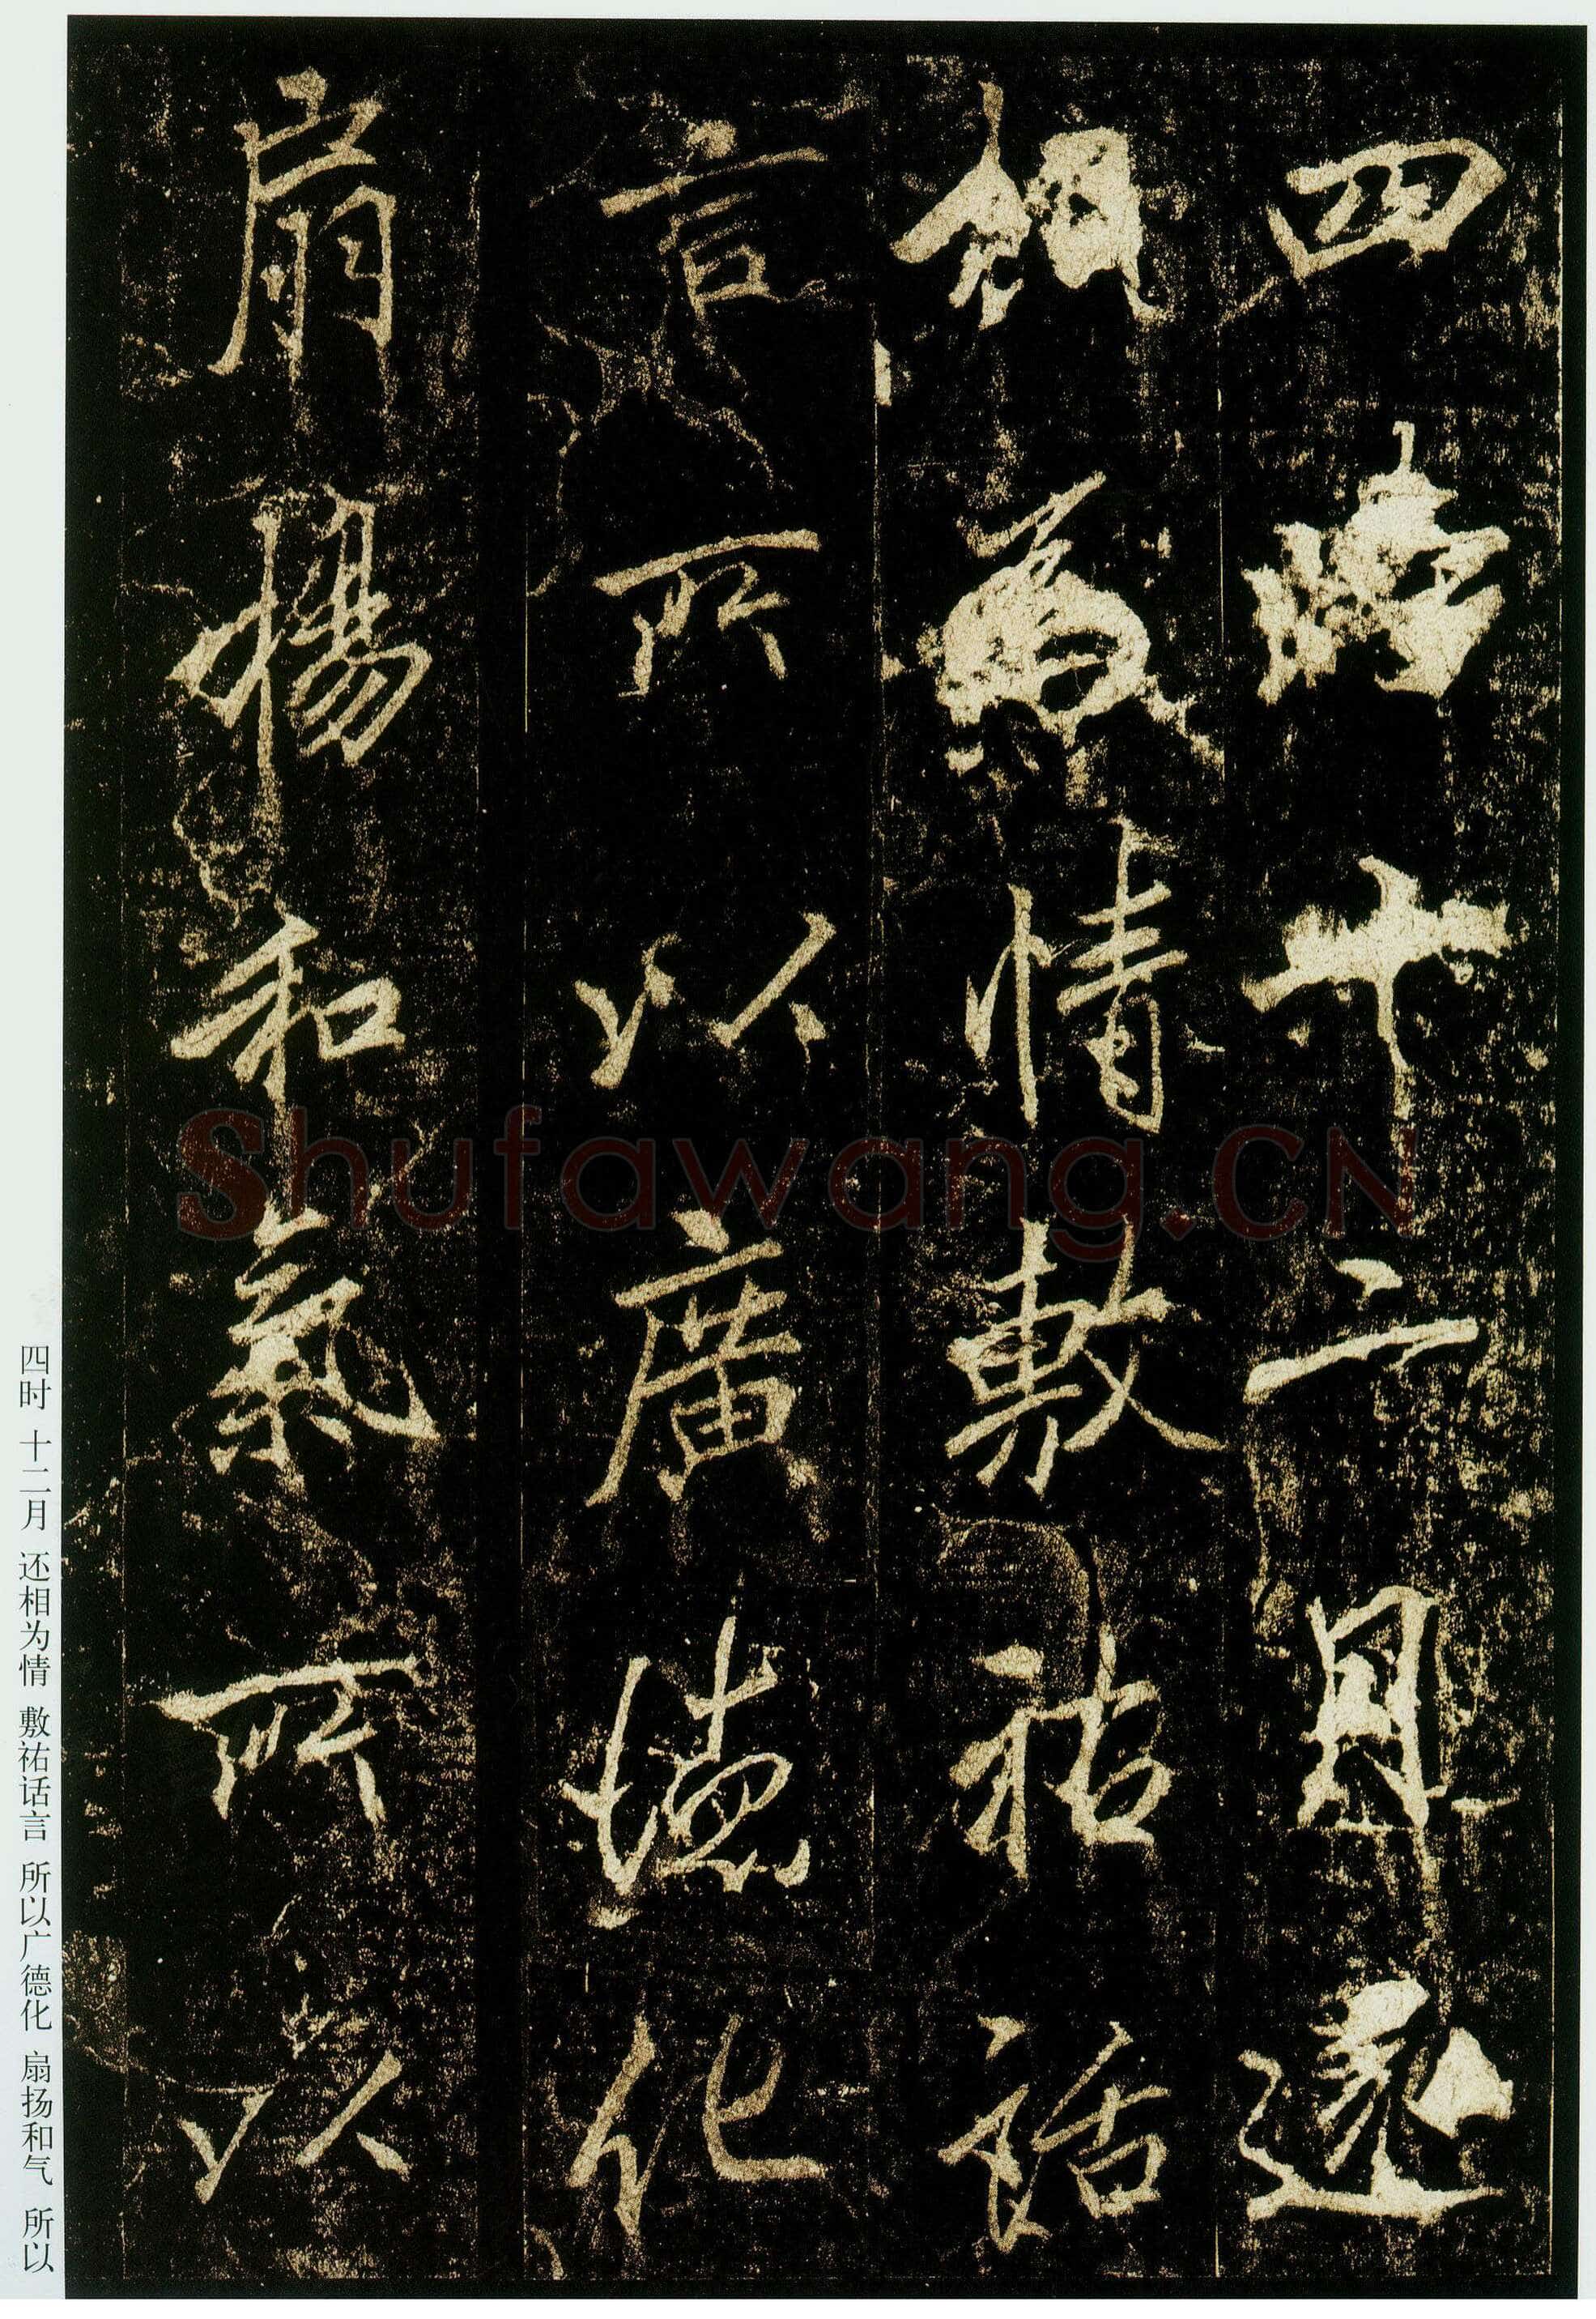 四時十二月還
相為情敷祐話
言所以廣德化
扇揚和氣所以
四时 十二月 还相为情 敷祐话言 所以广德化 扇扬和气 所以
Shufawang.CN